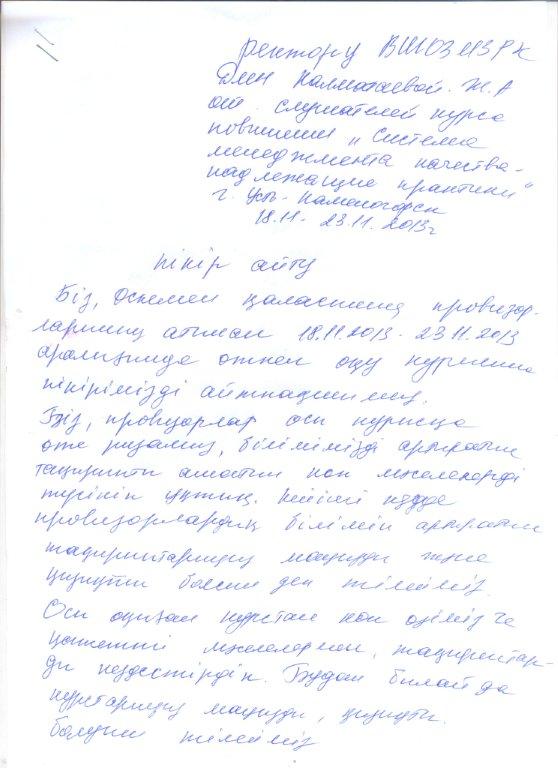 ректору ВШОЗ МЗ РК
Калматаевой Ж.А
от слушателей курса
повышения „Система
менеджмента качества-
надлежащие практики"
г. Усть-Каменогорск
18.11 - 23.11.2013г
пікір айту
Біз, Өскемен қаласының провизор-
ларының атынан 18.11.2013 - 23.11.2013
аралығында өткен оқу курсына
пікірімізді айтпақшымыз.
Біз, провизорлар осы курсқа
өте ризамыз, білімімізді арттыратын
көп мәселелерді
түсініп ұқтық. Кейінгі кезде
провизорлардың білімін арттыратын
тақырыптарыңыз маңызды және
қызықты болсын деп тілейміз.
Осы оқыған курстан көп өзімізге
қажетті мәселелермен, тақырыптар-
ды кездестірдік. Бұдан былай да
курстарыңыз маңызды, қызықты
болуын тілейміз